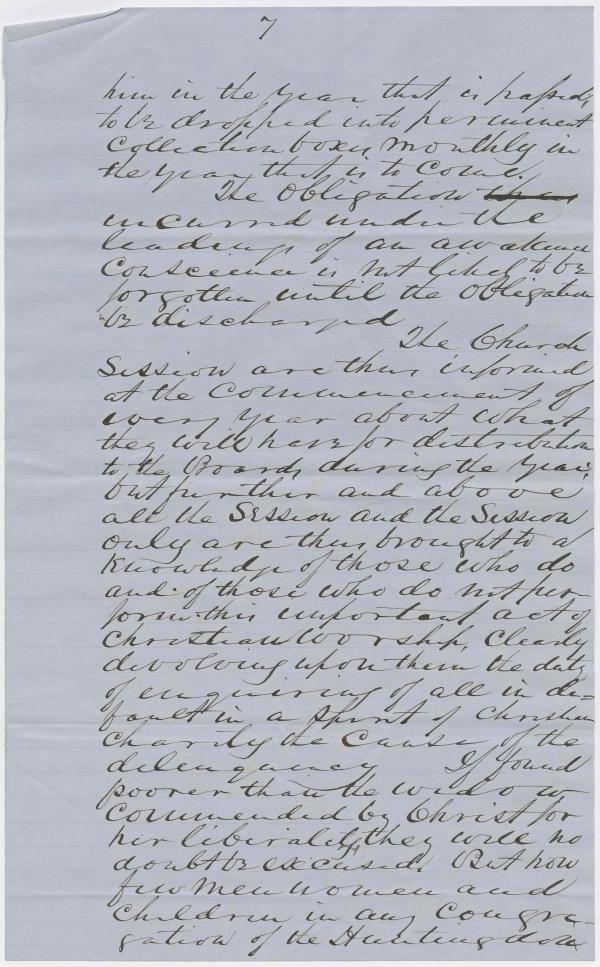 7
him in the year that is passed,
to be dropped into permanent
Collection boxes monthly in
the year that is to come.
The Obligation
incurred under the
leadings of an awakened
Conscience is not likely to be
forgotten until the obligation
be discharged
The Church
Session are thus informed
at the commencement of
every year about what
they will have for distribution
to the Boards during the year;
but further and above
all the Session and the Session
only are thus brought to a
Knowledge of those who do
and of those who do not per-
form this important act of
Christian worship, clearly
devolving upon them the duty
of enquiring of all in de-
fault in a spirit of Christian
charity the cause of the
delenquency If found
poorer than the widow
commended by Christ for
her liberality, they will no
doubt be excused. But how
few men women and
children in any congre-
gation of the Huntingdon